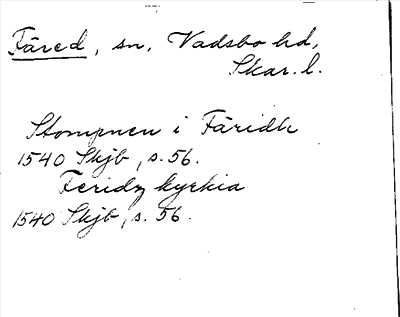 Färed, sn, Vadsbo hd,
Skar. l.
Stompnen i Färidh
1540 Skjb, s. 56.
Feridz kyrkia
1540 Skjb, s. 56.